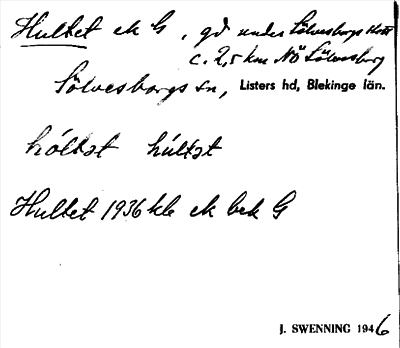 Hultet ek G , gd under Sölvesborgs slott
c. 2,5 km NÖ Sölvesborg
Sölvesborgs sn, Listers hd, Blekinge län.
hóltət húltət
Hultet 1936 kle ek bek G
J. SWENNING 1946